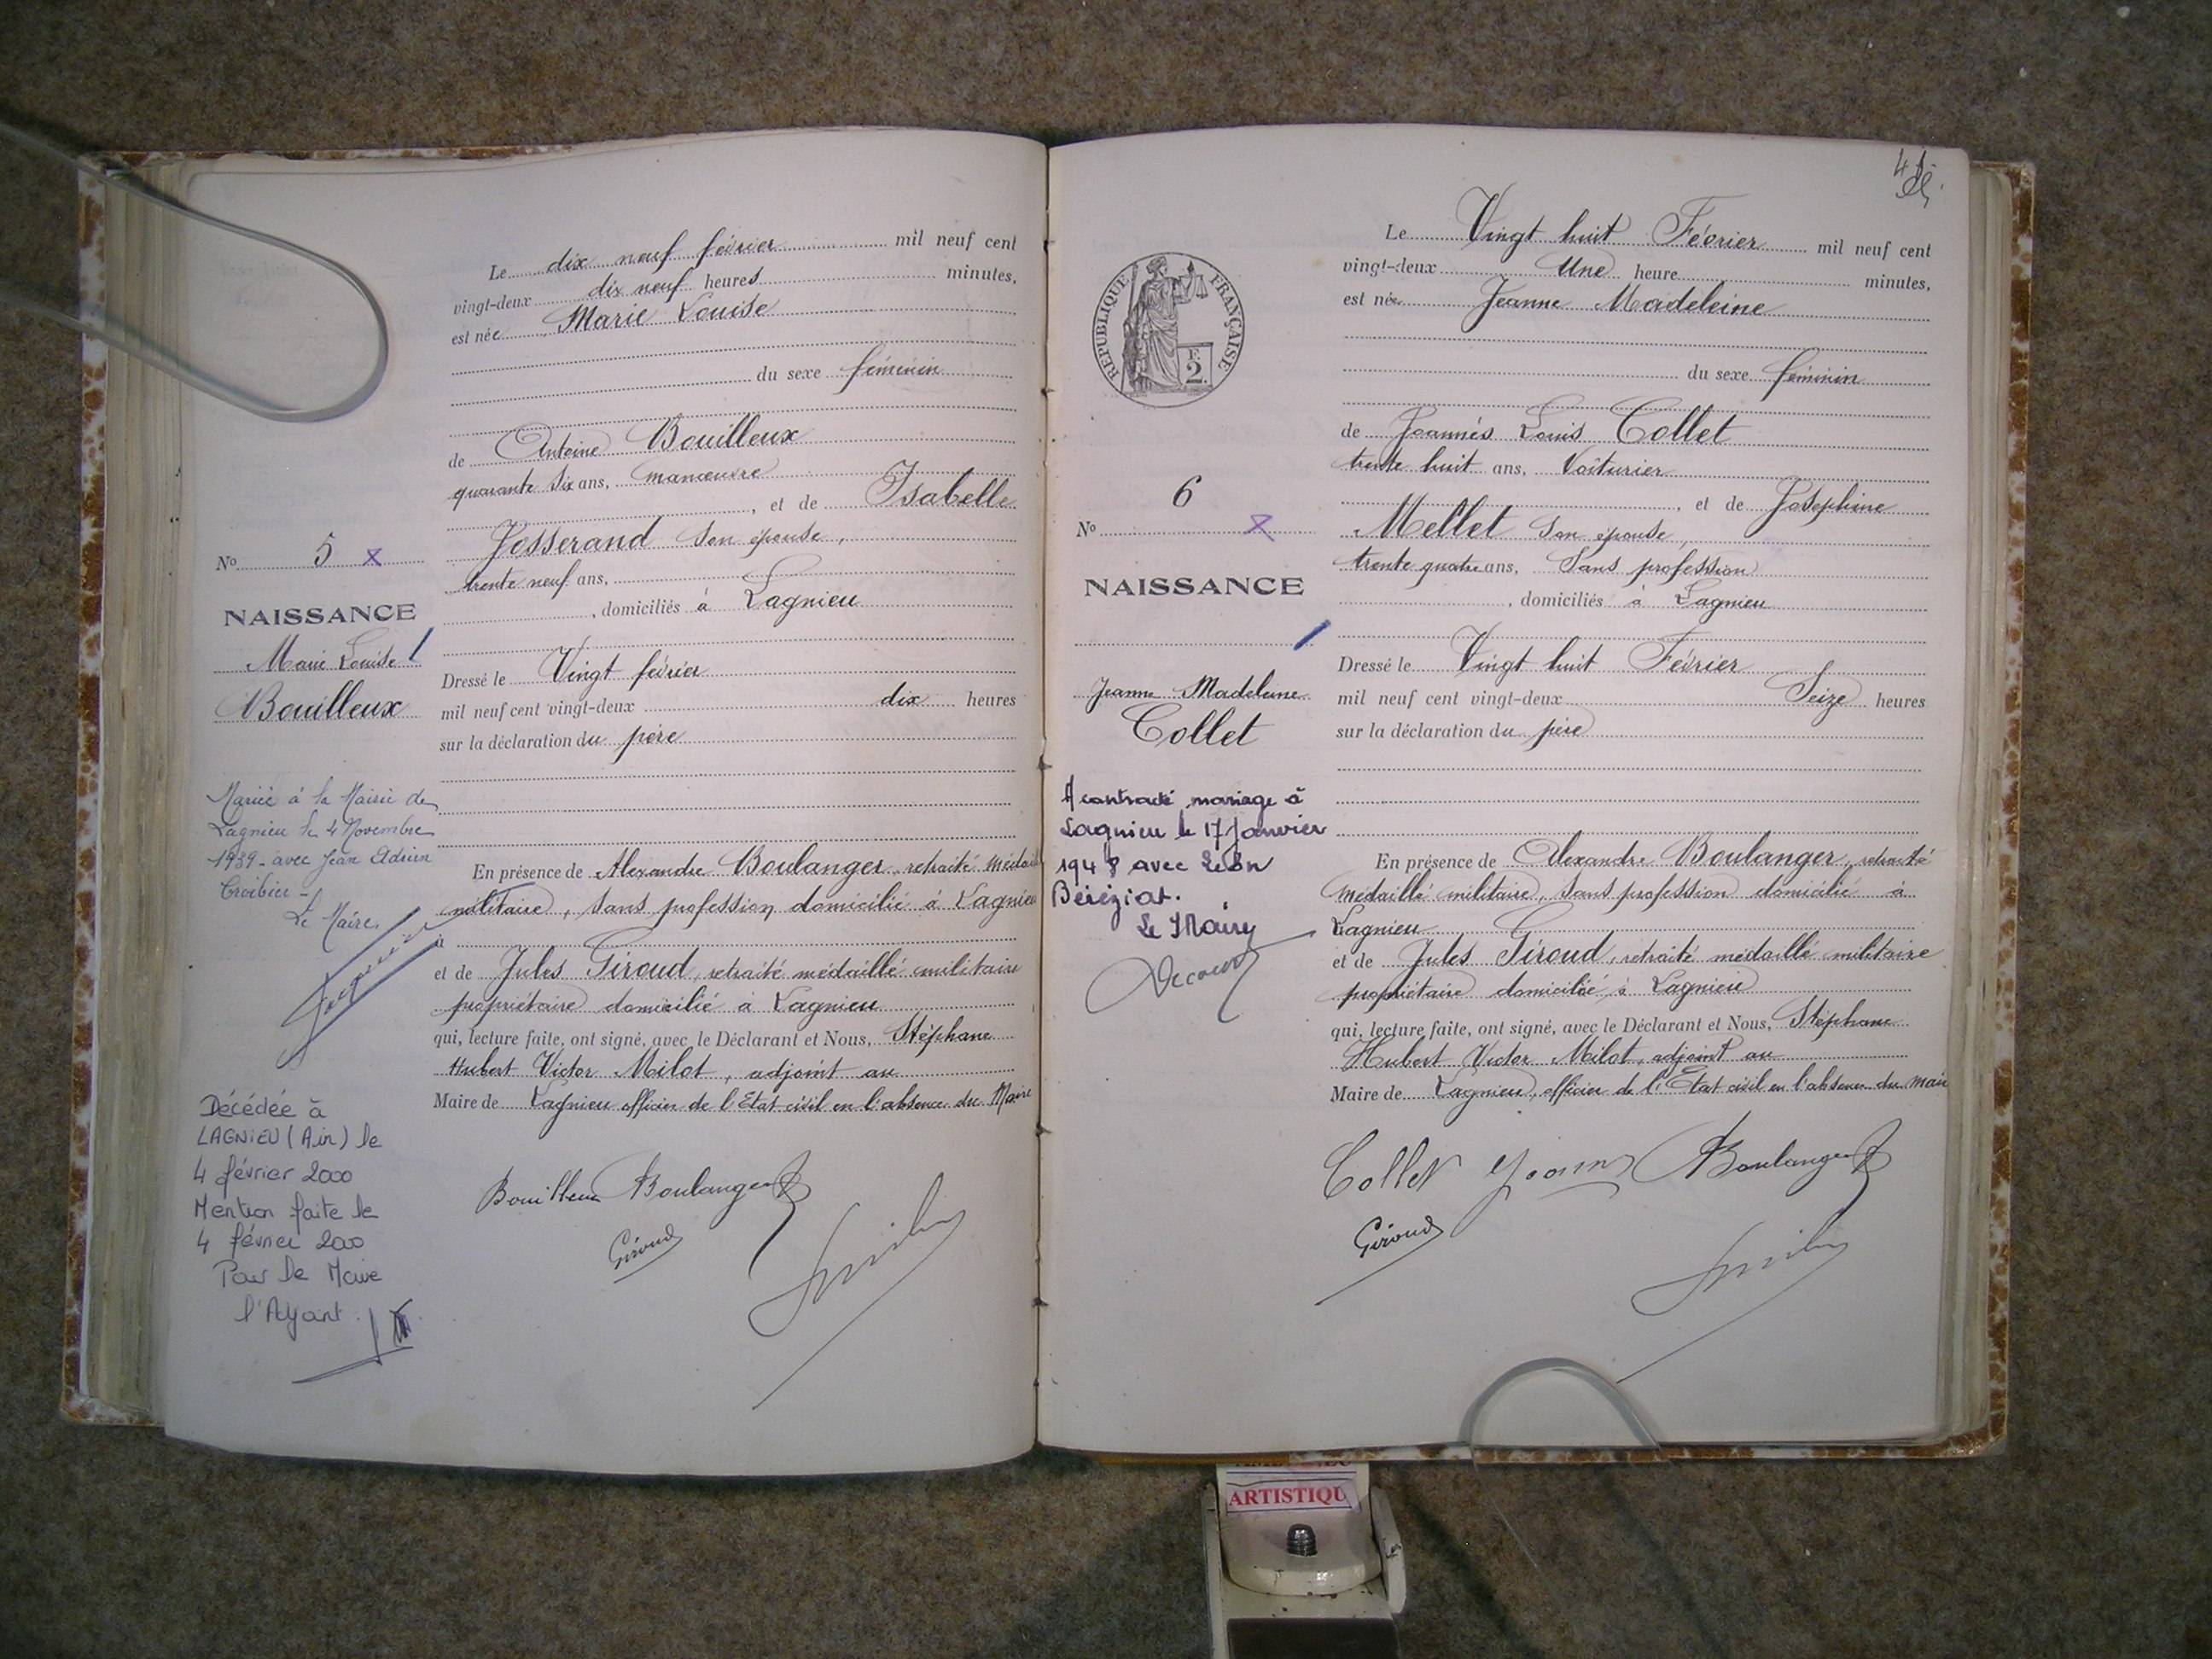 Le dix neuf février mil neuf cent
vingt-deux dix neuf heures minutes,
est née Marie Louise
du sexe féminin
de Antoine Bouilleux
quarante six ans, manœuvre
, et de Isabelle
Josserand son épouse,
trente neuf ans,
, domiciliés à Lagnieu
Dressé le Vingt février
mil neuf cent vingt-deux dix heures
sur la déclaration du père
En présence de Alexandre Boulanger, retraité médaillé
militaire, sans profession domicilié à Lagnieu
à
et de Jules Giroud, retraité médaillé militaire
propriétaire domicilié à Lagnieu
qui, lecture faite, ont signé, avec le Déclarant et Nous, Stéphane
Hubert Victor Milot, adjoint au
Maire de Lagnieu officier de l'Etat civil en l'absence du Maire
Bouilleux Boulanger
Giroud
No 5 x
NAISSANCE
Marie Louise
Bouilleux
Mariée à la Mairie de
Lagnieu le 4 Novembre
1939 - avec Jean Adrien
Croibier -
Le Maire,
Décédée à
LAGNIEU (Ain) le
4 février 2000
Mention faite le
4 février 2000
Pour le Maire
l'Agent.
41
Le Vingt huit Février mil neuf cent
vingt-deux Une heure minutes,
est née Jeanne Madeleine
du sexe féminin
de Joannès Louis Collet
trente huit ans, Voiturier
, et de Joséphine
Mellet son épouse,
trente quatre ans, Sans profession
, domiciliés à Lagnieu
Dressé le Vingt huit Février
mil neuf cent vingt-deux Seize heures
sur la déclaration du père
En présence de Alexandre Boulanger, retraité
médaillé militaire, sans profession domicilié à
Lagnieu
et de Jules Giroud, retraité médaillé militaire
propriétaire domicilié à Lagnieu
qui, lecture faite, ont signé, avec le Déclarant et Nous, Stéphane
Hubert Victor Milot, adjoint au
Maire de Lagnieu, officier de l'Etat civil en l'absence du Maire
Collet Boulanger
Giroud
REPUBLIQUE FRANÇAISE
F.
2.
No 6 x
NAISSANCE
Jeanne Madeleine
Collet
A contracté mariage à
Lagnieu le 17 Janvier
1948 avec Léon
Béréziat.
Le Maire
ARTISTIQU